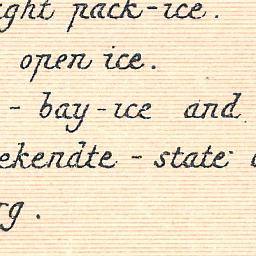 ight pack-ice.
open ice.
- bay-ice and
ekendte - state
rg.